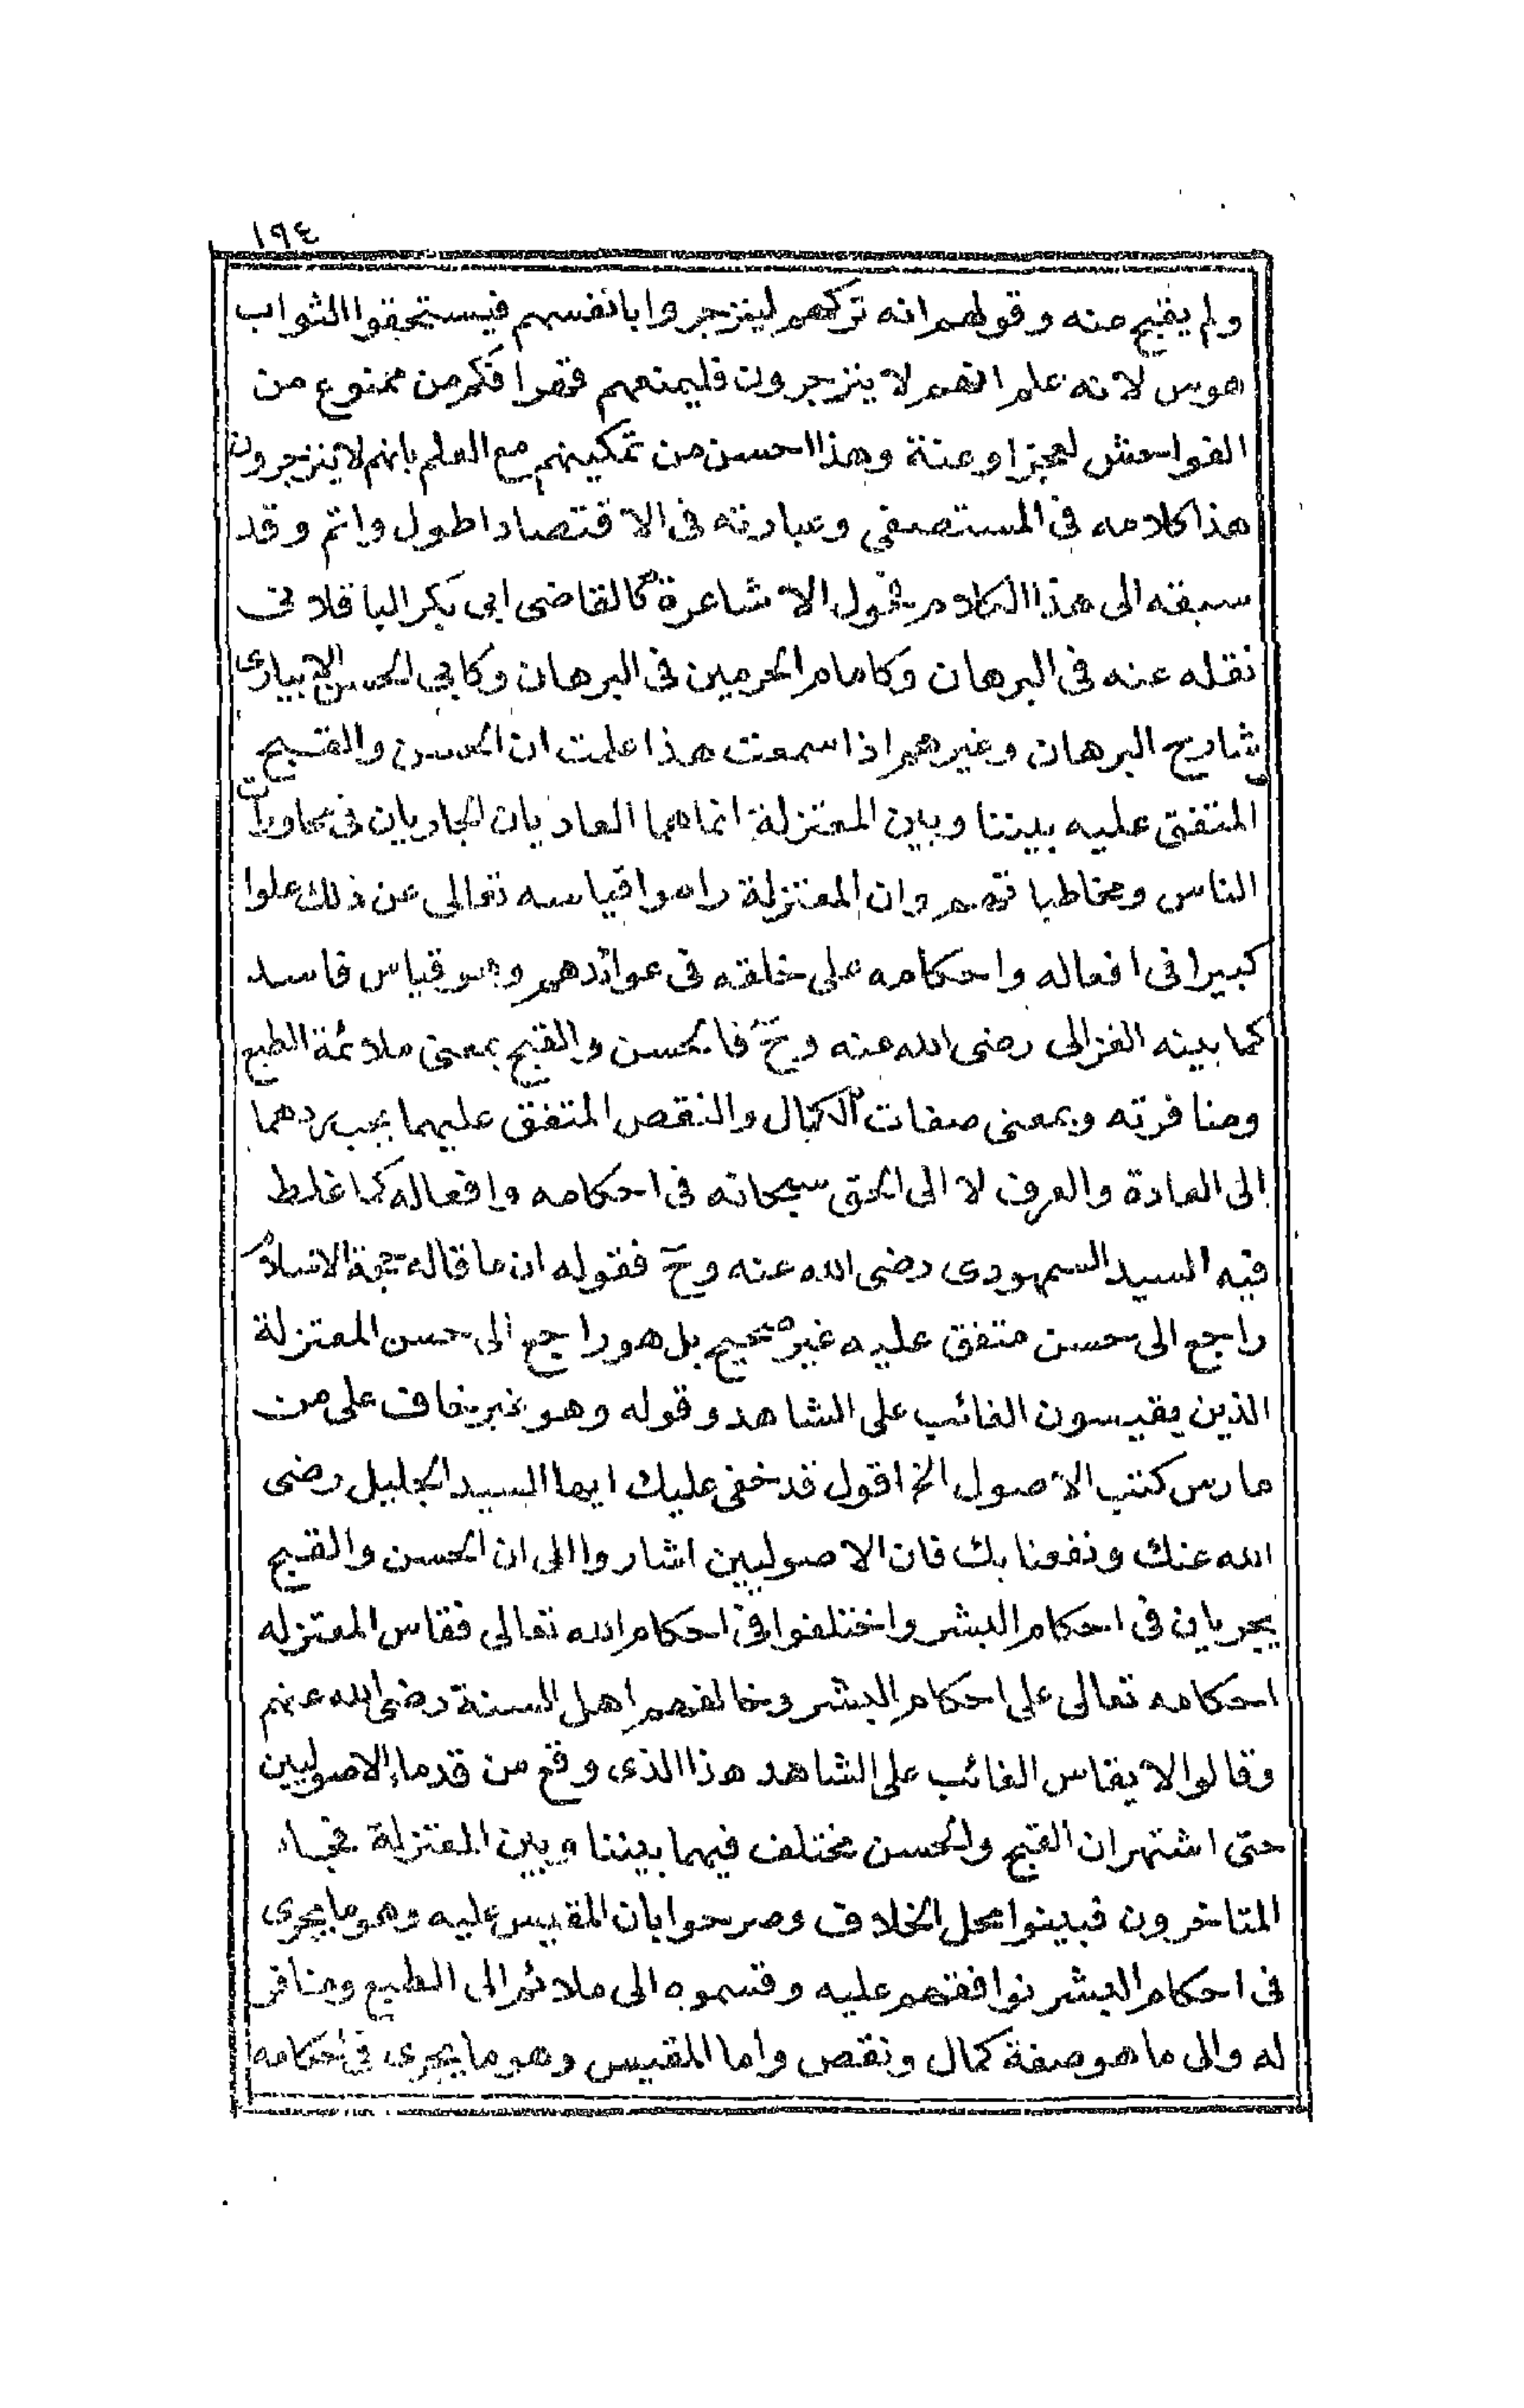 ١٩٤
ولم يقبح منه وقولهم انه تركهم لينزجروا بانفسهم فيستحقوا الثواب
هوس لانه علم انهم لا ينزجرون فليمنعهم قهرا فكم من ممنوع من
الفواحش لعجز او عنة وهذا احسن من تمكينهم مع العلم بانهم لا ينزجرون
هذا كلامه فى المستصفى وعبارته فى الاقتصاد اطول واتم وقد
سبقه الى هذا الكلام فحول الاشاعرة كالقاضى ابى بكر الباقلانى
نقله عنه فى البرهان وكامام الحرمين فى البرهان وكابى الحسن الابيارى
شارح البرهان وغيرهم اذا سمعت هذا علمت ان الحسن والقبيح
المتفق عليه بيننا وبين المعتزلة انما هما العاديان الجاريان فى محاورات
الناس ومخاطباتهم وان المعتزلة راموا قياسه تعالى عن ذلك علوا
كبيرا فى افعاله واحكامه على خلقه فى عوائدهم وهو قياس فاسد
كما بينه الغزالى رضى الله عنه وح فالحسن والقبح بمعنى ملائمة الطبع
ومنافرته وبمعنى صفات الكمال والنقص المتفق عليهما يجب ردهما
الى العادة والعرف لا الى الحق سبحانه فى احكامه وافعاله كما غلط
فيه السيد السمهودى رضى الله عنه وح فقوله ان ما قاله حجة الاسلام
راجع الى حسن متفق عليه غير صحيح بل هو راجع الى حسن المعتزلة
الذين يقيسون الغائب على الشاهد وقوله وهو غير خاف على من
مارس كتب الاصول الخ اقول قد خفى عليك ايها السيد الجليل رضى
الله عنك ونفعنا بك فان الاصوليين اشاروا الى ان الحسن والقبح
يجريان فى احكام البشر واختلفوا فى احكام الله تعالى فقاس المعتزله
احكامه تعالى على احكام البشر وخالفهم اهل السنة رضى الله عنهم
وقالوا لا يقاس الغائب على الشاهد هذا الذى وقع من قدماء الاصوليين
حتى اشتهر ان القبح والحسن مختلف فيهما بيننا وبين المعتزلة فجاء
المتاخرون فبينوا محل الخلاف وصرحوا بان المقيس عليه وهو ما يجرى
فى احكام البشر نوافقهم عليه وقسموه الى ملائم الى الطبع ومنافر
له والى ما هو صفة كمال ونقص واما المقيس وهو ما يجرى فى احكامه